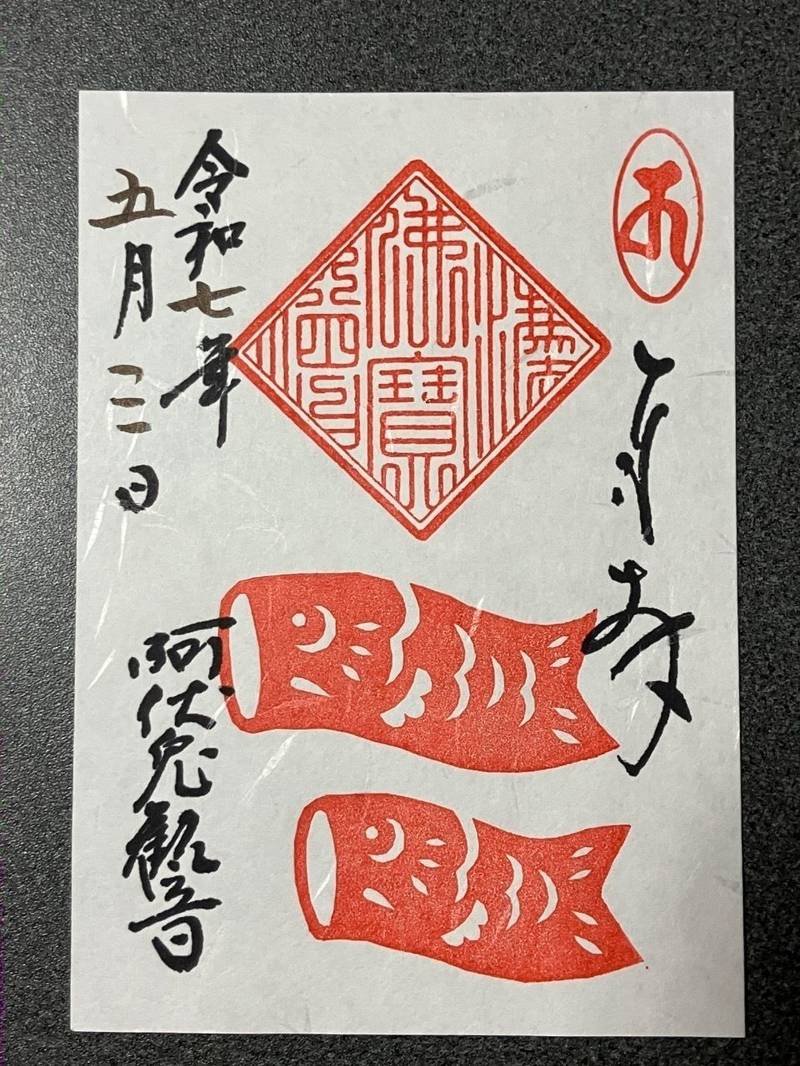 奉拝
佛寶
令和七年
五月三日
阿伏兎観音